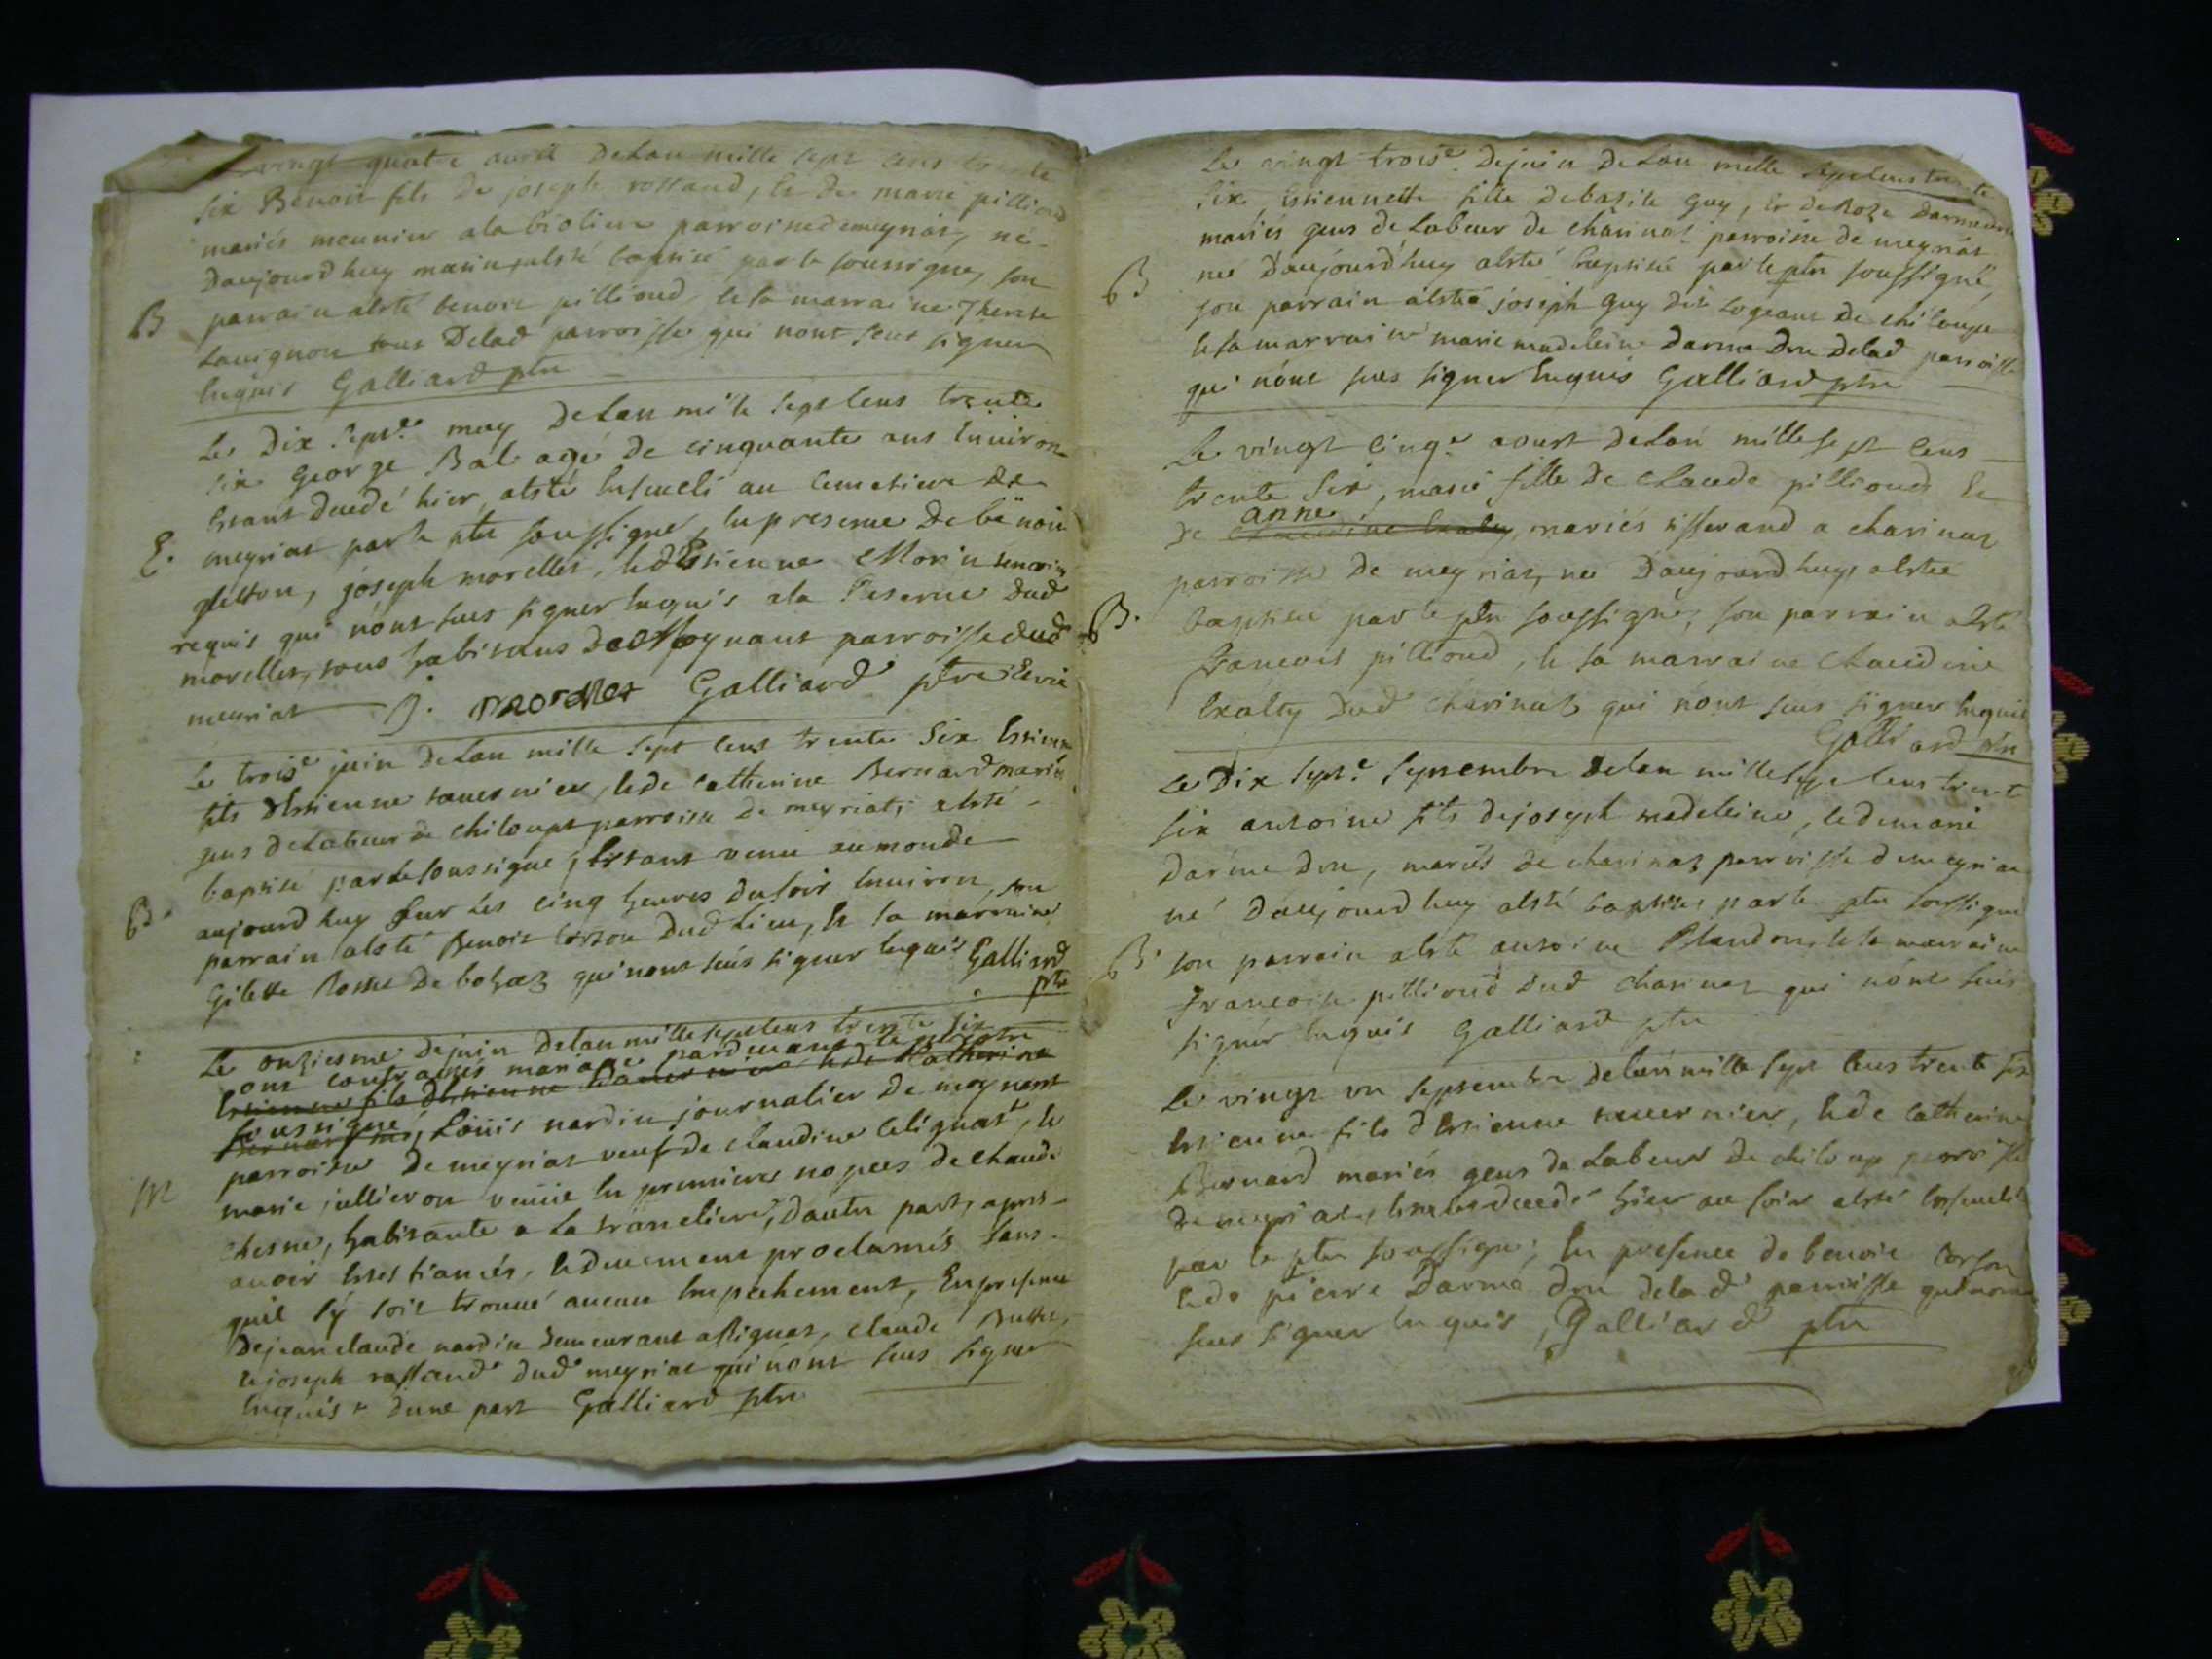 vingt quatre avril de Lan mille sept cens trente
six Benoit fils de joseph rossand, & de marie pilliond
mariés meunier a la biolier parroisse de meyriat, né
daujourdhuy matin, at esté baptisé par le soussigné, son
B parrain at esté benoit pilliond, & sa marraine Therese
Lauignon tous delad parroisse qui nont seus signer
Enquis Galliard ptre
Le Dix Septe may de Lan mille sept cens trente
six George Bal agé de cinquante ans Enuiron
Estant decedé hier, at esté Enseueli au cemetiere de
E. meyriat par le ptre soussigné, En presence de benoit
joseph morellet, & d'Estienne Morin temoins
requis qui nónt seus signer Enquis a la reserue dud
morellet, tous habitans de Moynant parroisse dud
meyriat J. morellet Galliard ptre Curé
Le troise juin de Lan mille sept cens trente six Estienne
fils d'Estienne tauernier, & de Catherine Bernard mariés
gens de Labeur de chiloupt parroisse de meyriat, at esté
baptisé par le soussigné, Estant venu au monde
B. aujourdhuy sur les cinq heures du soir Enuiron, son
parrain at esté Benoit Corson dud Lieu, & sa marraine
Gilette de bohaz qui nont seus signer Enquis Galliard
ptre
Le onziesme de juin de Lan mille sept cens trente six
ont contractés mariage pardeuant le prestre
Estienne fils d'Estienne tauernier & de Catherine
soussigné
Bernard, Loüis nardin journalier de moynant
parroisse de meyriat veuf de claudine Celignat, &
M marie jullieron veüue En premieres nopces de claude
chesne, habitante a La tranclière, dautre part, apres
auoir Estes fiancés, & duement proclamés sans
quil sÿ soit trouué aucun Empechement, En presence
de jean claude nardin demeurant a Rignat, claude
& joseph rossand dud meyriat qui nónt seus signer
Enquis + dune part Galliard ptre
Le vingt troise de juin de Lan mille sept cens trente
six, Estiennette fille de bazile Guy, & de Roze Darmedru
mariés gens de Labeur de charinas parroisse de meyriat
née d'aujourdhuy at estée baptisée par le ptre soussigné,
B son parrain at esté joseph Guy dit Logeant de chiloupt
& sa marraine marie madeleine Darmedru delad parroisse
qui nónt seus signer Enquis Galliard ptre
Le vingt cinqe aoust de Lan mille sept cens
trente six, marie fille de claude pilliond &
anne
de Claudine Exalty, mariés tisserand a charinas
parroisse de meyriat, née d'aujourdhuy at estée
B. baptisée par le ptre soussigné, son parrain at esté
francois pilliond, & sa marraine claudine
Exalty dud charinas qui nónt seus signer Enquis
Galliard ptre
Le Dix septe septembre de Lan mille sept cens trente
six antoine fils de joseph madeleine, & de marie
Darmedru, mariés de charinas parroisse de meyriat
né d'aujourdhuy at esté baptisé par le ptre soussigné
B. son parrain at esté antoine Blandon, & sa marraine
Francoise pilliond dud charinas qui nónt seus
signér Enquis Galliard ptre
Le vingt vn septembre de Lan mille sept cens trente six
Estienne fils d'Estienne tauernier, & de Catherine
Bernard mariés gens de Labeur de chiloupt parroisse
de meyriat, decedé hier au soir at esté Enseueli
par le ptre soussigné, En presence de benoit Corson
& de pierre Darmedru delad parroisse qui nont
seus signer Enquis, Galliard ptre